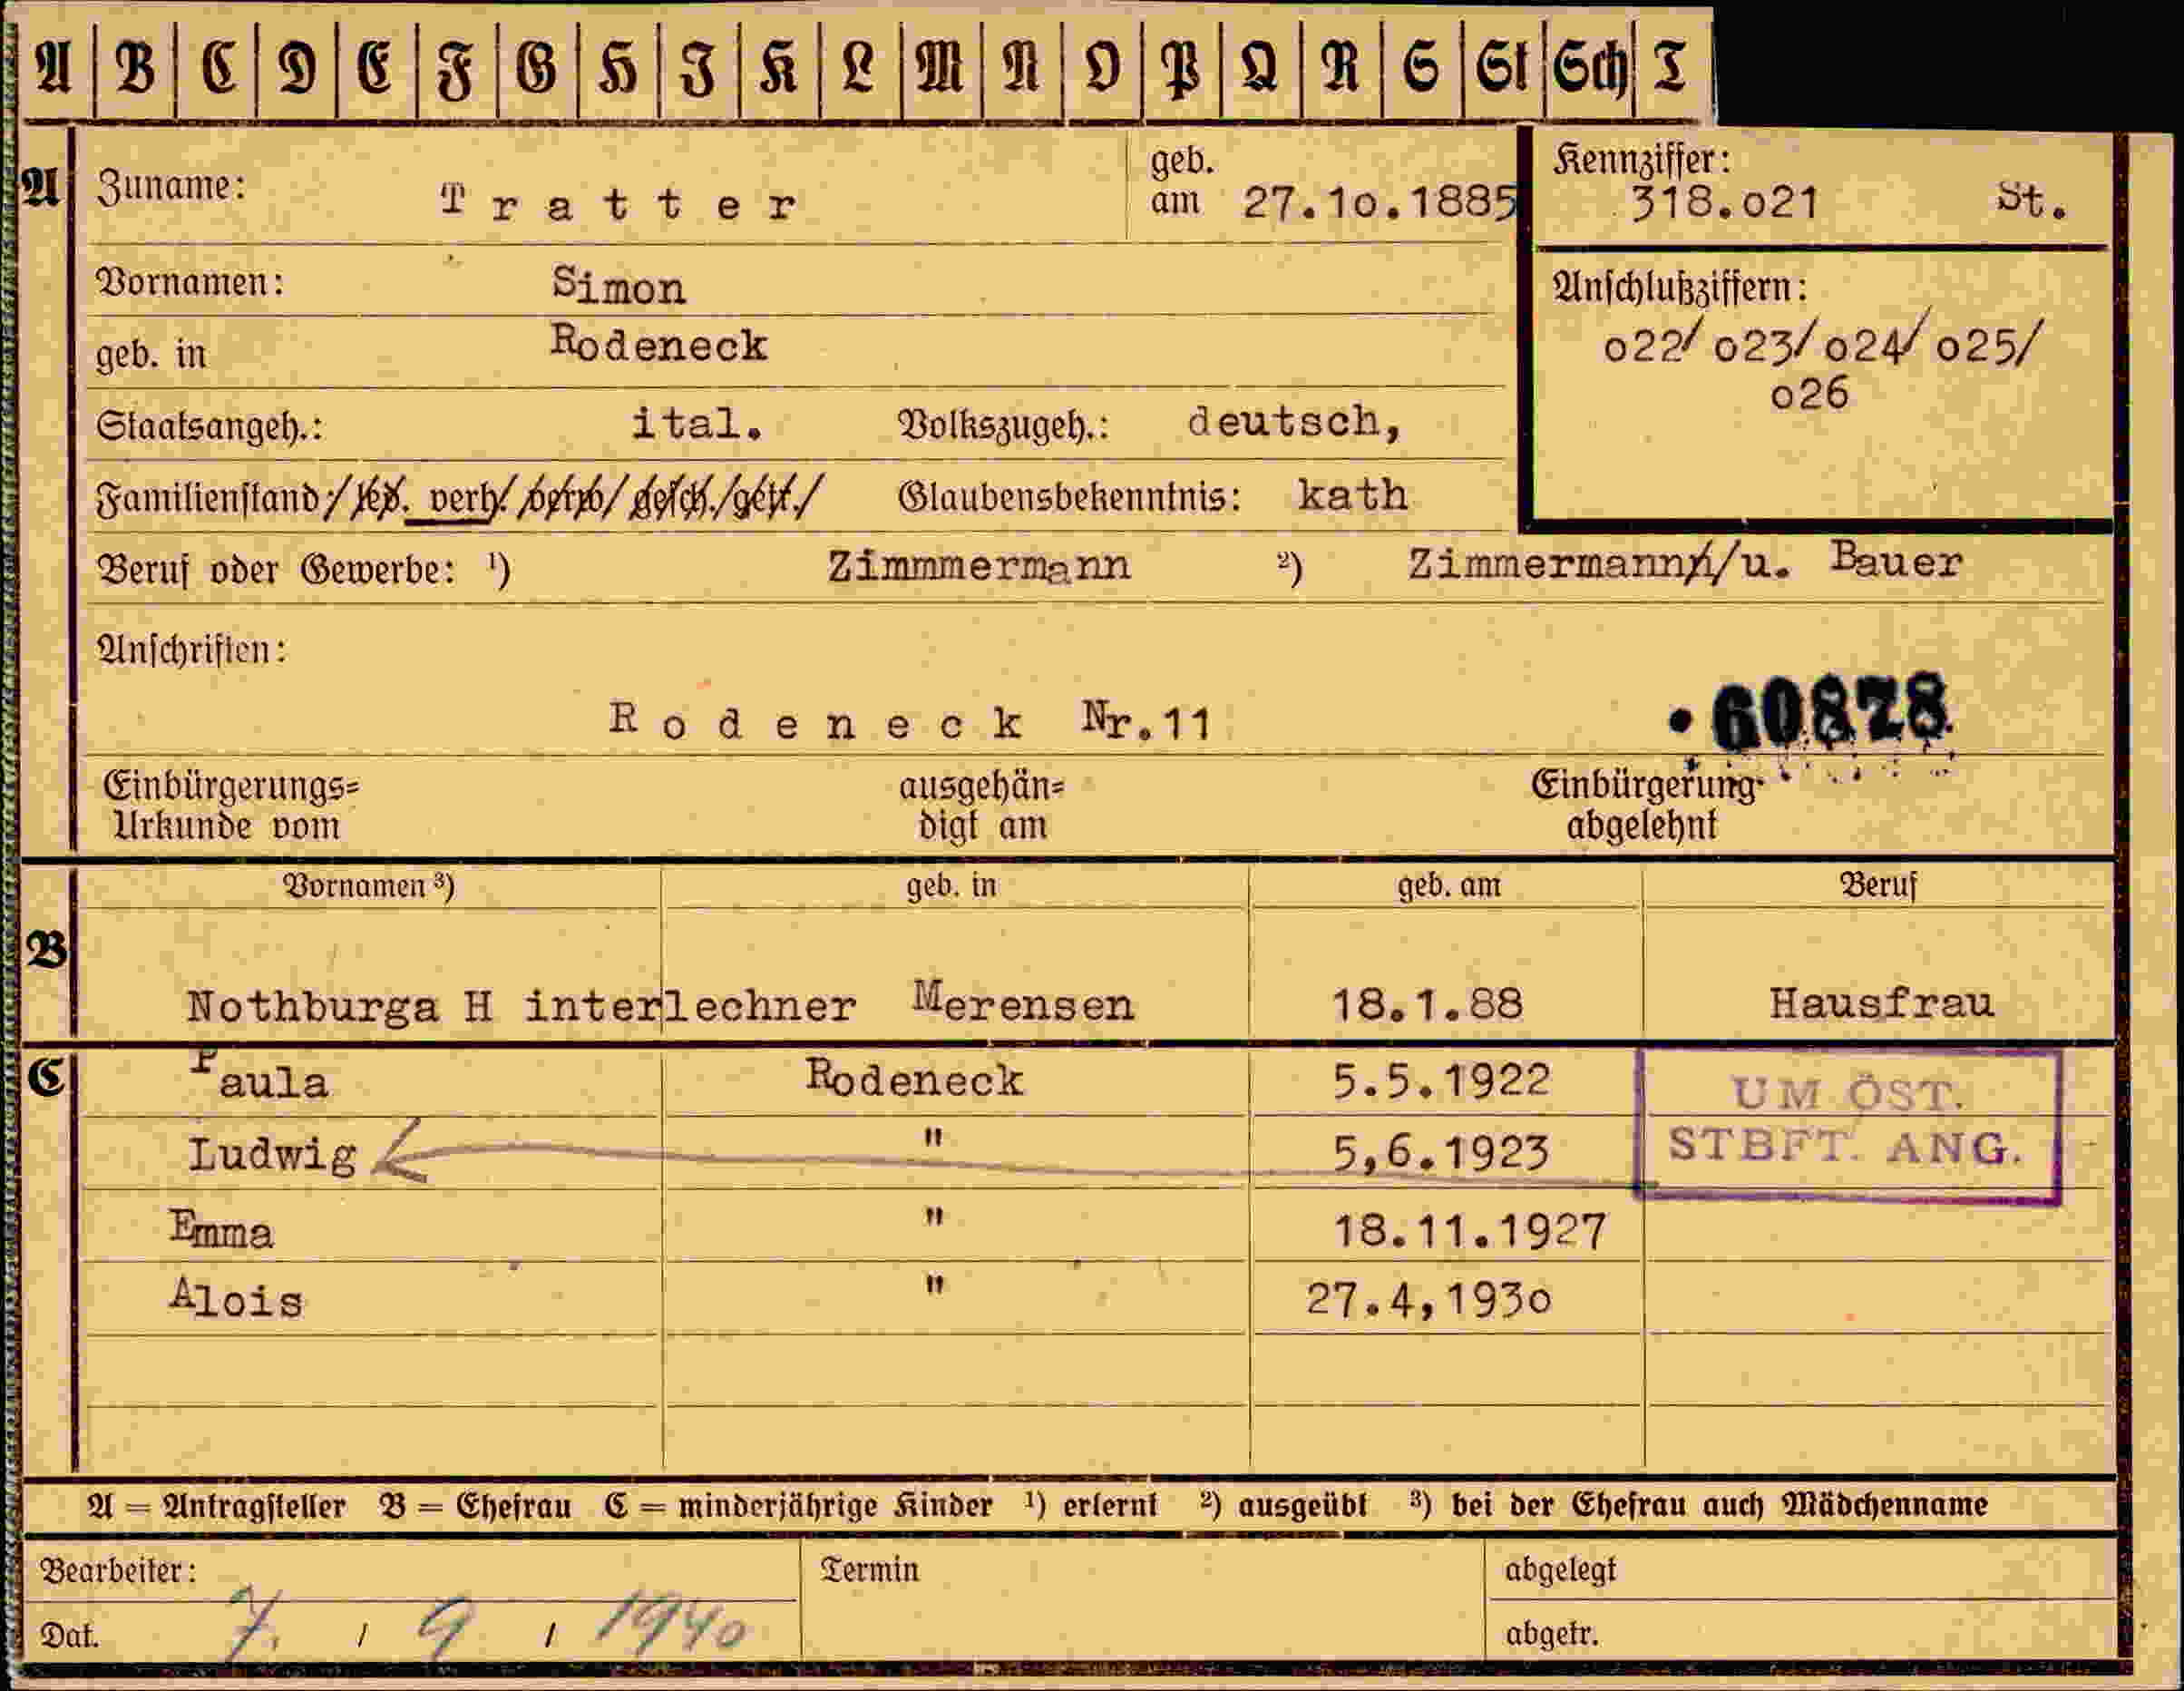 A B C D E F G H I K L M N O P Q R S St Sch T
A Zuname: Tratter geb. am 27.1o.1885 Kennziffer: 318.o21 St.
Vornamen: Simon Anschlußziffern:
geb. in Rodeneck o22/ o23/ o24/ o25/
o26
Staatsangeh.: ital. Volkszugeh.: deutsch,
Familienstand:/led. verh./verw/gesch./getr./ Glaubensbekenntnis: kath
Beruf oder Gewerbe: ¹) Zimmmermann ²) Zimmermann/u. Bauer
Anschriften:
Rodeneck Nr.11 • 60828
Einbürgerungs= ausgehän= Einbürgerung
Urkunde vom digt am abgelehnt
Vornamen ³) geb. in geb. am Beruf
B
Nothburga H interlechner Merensen 18.1.88 Hausfrau
C Paula Rodeneck 5.5.1922 UM ÖST.
Ludwig " 5,6.1923 STBFT. ANG.
Emma " 18.11.1927
Alois " 27.4,193o
A = Antragsteller B = Ehefrau C = minderjährige Kinder ¹) erlernt ²) ausgeübt ³) bei der Ehefrau auch Mädchenname
Bearbeiter: Termin abgelegt
Dat. 7. / 9 / 1940 abgetr.